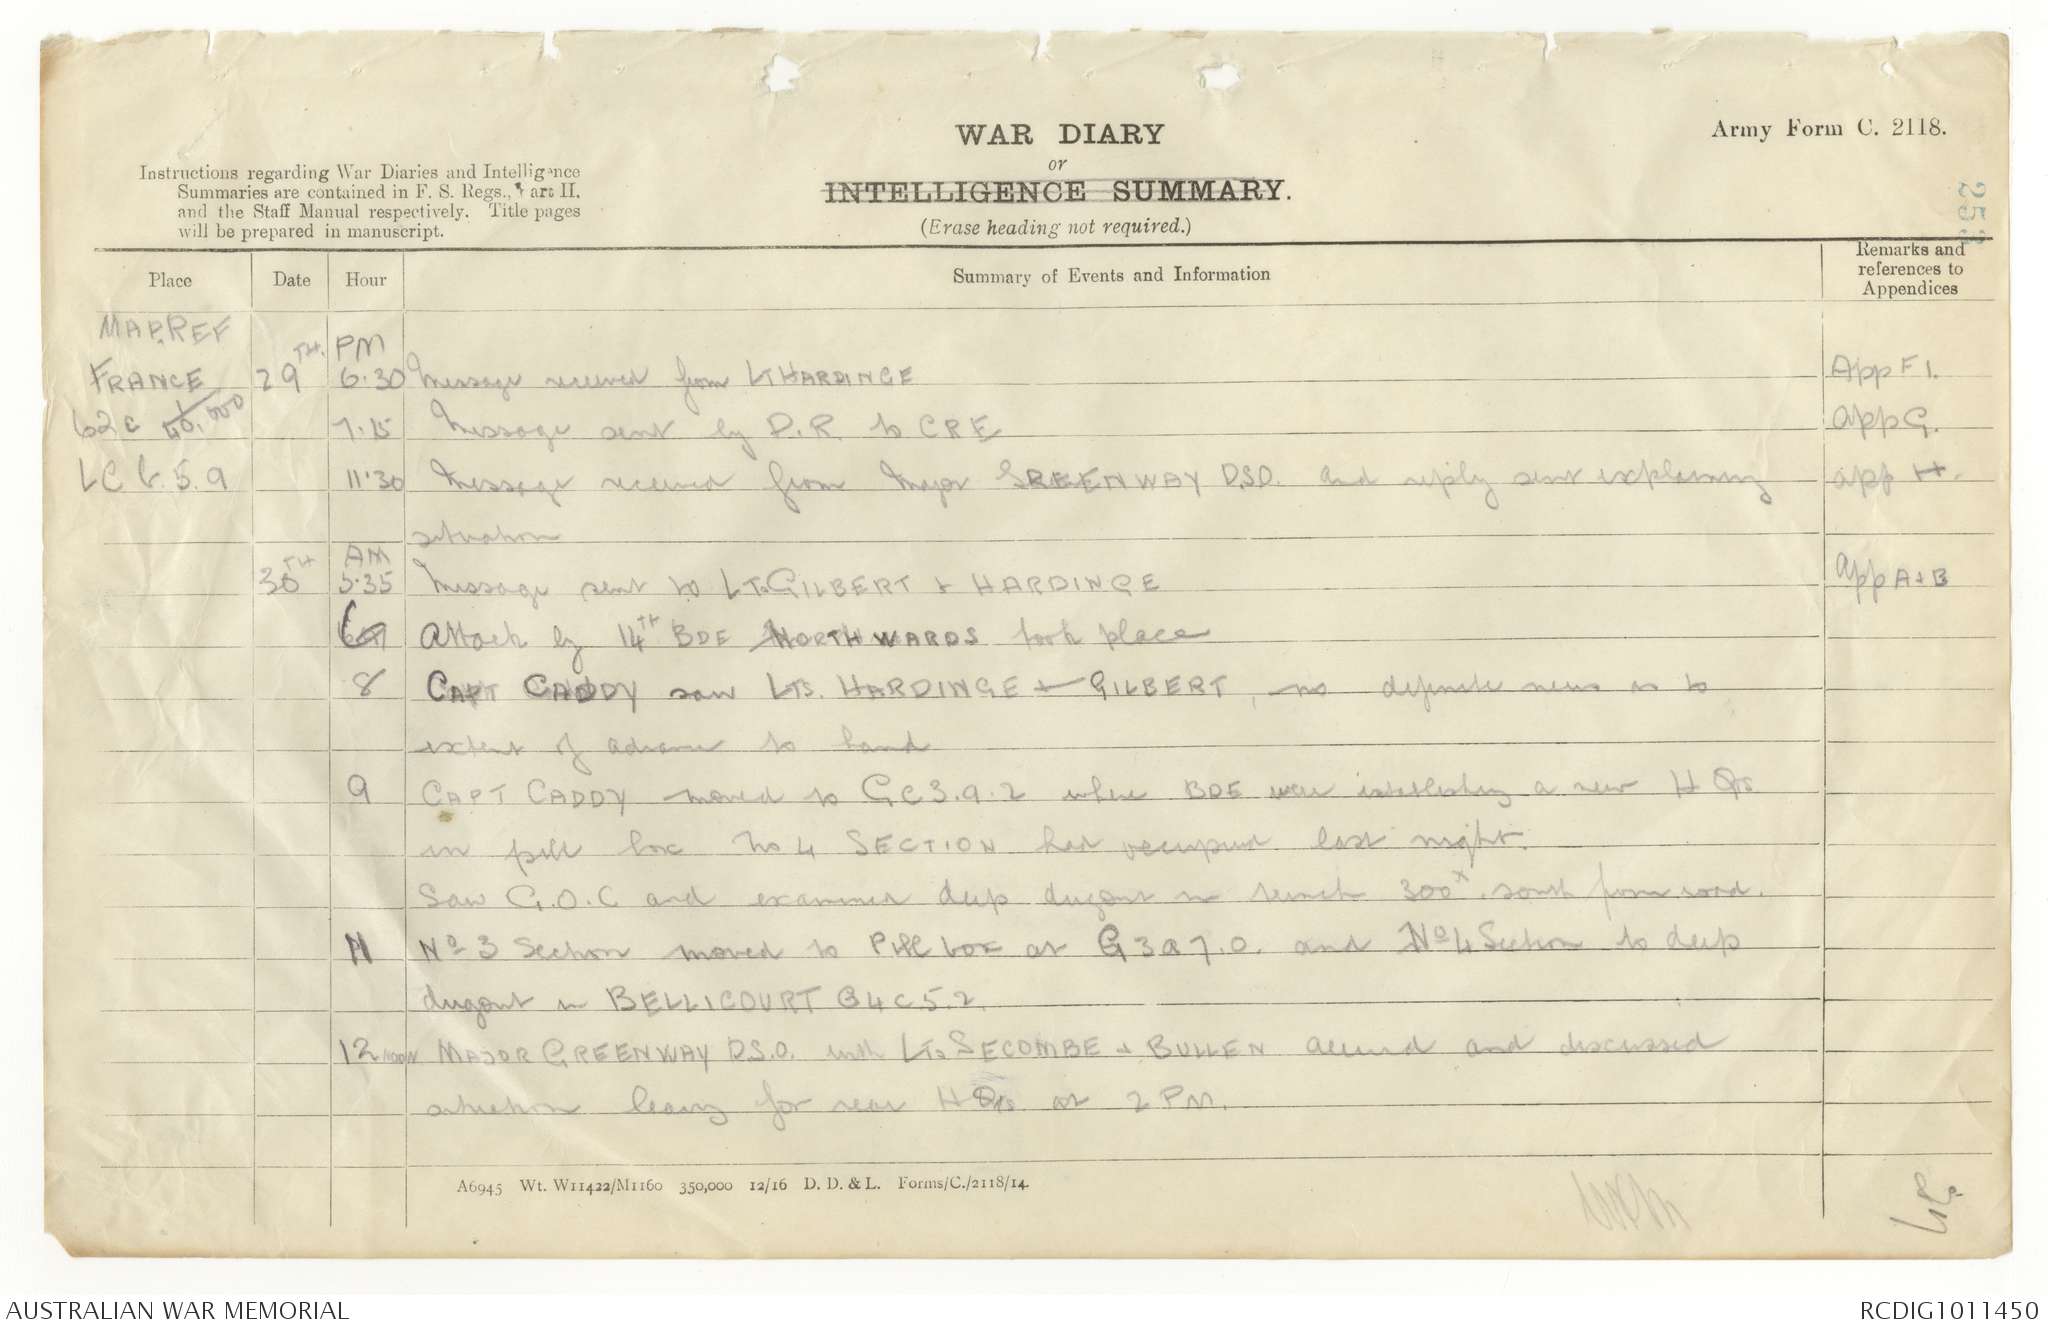 WAR DIARY
or
INTELLIGENCE SUMMARY.
(Erase heading not required.)
Army Form C. 2118.
Instructions regarding War Diaries and Intelligence
Summaries are contained in F. S. Regs., Part II.
and the Staff Manual respectively. Title pages
will be prepared in manuscript.
Place Date Hour Summary of Events and Information Remarks and references to Appendices
MAP.REF
FRANCE 29TH. PM 6.30 Message received from LT HARDINGE App F1.
62c 1/40,000 7.15 Message sent by D.R. to CRE App G.
11.30 Message received from Major GREENWAY D.S.O. and reply sent explaining app H.
situation
30TH AM 5.35 Message sent to LTs GILBERT & HARDINGE App A & B
6 Attack by 14TH BDE NORTHWARDS took place
8 CAPT CADDY saw LTS. HARDINGE & GILBERT, no definite news as to
extent of advance to hand
9 CAPT CADDY moved to GC3.9.2 where BDE were establishing a new H Qrs
in pill box No 4 SECTION had occupied last night.
Saw G.O.C and examined deep dugout in trench 300x south from road.
11 No 3 Section moved to Pill box at G3a7.0. and No 4 Section to deep
dugout in BELLICOURT G4C5.2.
12 NOON MAJOR GREENWAY D.S.O. with LTs SECOMBE & BULLEN arrived and discussed
situation leaving for rear H Qrs at 2 PM.
A6945 Wt. W11422/M1160 350,000 12/16 D. D. & L. Forms/C./2118/14.
AUSTRALIAN WAR MEMORIAL
RCDIG1011450